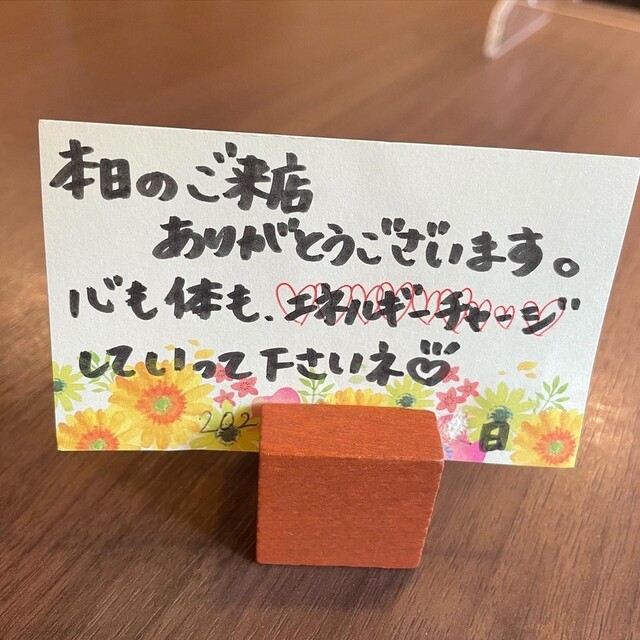 本日のご来店
ありがとうございます。
心も体も、エネルギーチャージ
していって下さいネ♡
202
日